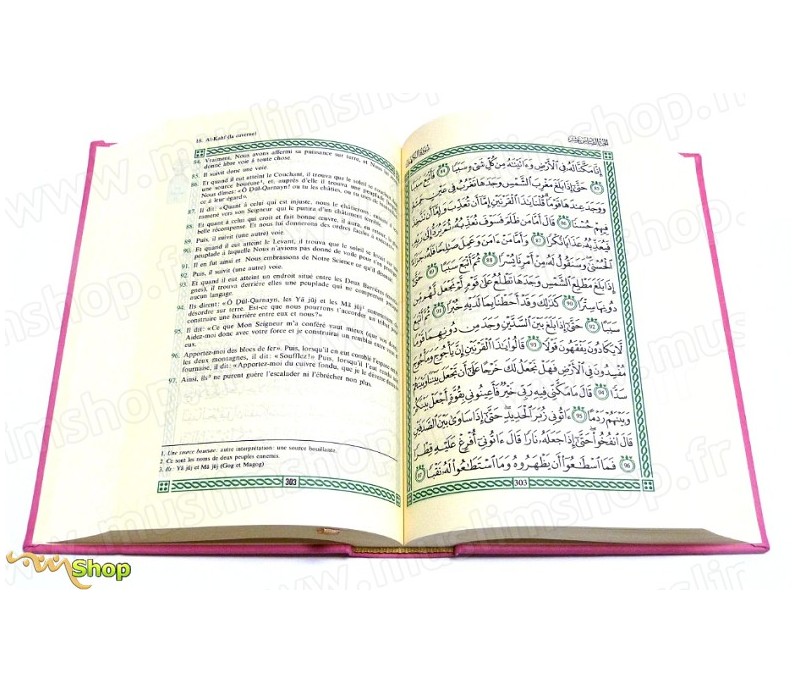 18. Al-Kahf (la caverne)
84. Vraiment, Nous avons affermi sa puissance sur terre, et Nous
donné libre voie à toute chose.
85. Il suivit donc une voie.
86. Et quand il eut atteint le Couchant, il trouva que le soleil se
une source boueuse¹, et, auprès d'elle il trouva une peuplade
Nous dîmes: «Ô Dûl-Qarnayn! ou tu les châties, ou tu
ce à leur égard».
87. Il dit: «Quant à celui qui est injuste, nous le châtierons,
ramené vers son Seigneur qui le punira d'un châtiment
88. Et quant à celui qui croit et fait bonne œuvre, il aura, en
belle récompense. Et nous lui donnerons des ordres faciles
89. Puis, il suivit (une autre) voie.
90. Et quand il eut atteint le Levant, il trouva que le soleil se levait
peuplade à laquelle Nous n'avions pas donné de voile pour s'en
91. Il en fut ainsi et Nous embrassons de Notre Science ce qu'il
92. Puis, il suivit (une autre) voie.
93. Et quand il eut atteint un endroit situé entre les Deux Barrières
gnes), il trouva derrière elles une peuplade qui ne comprenait
aucun langage.
94. Ils dirent: «Ô Dûl-Qarnayn, les Yâ jûj et les Mâ jûj²
désordre sur terre. Est-ce que nous pourrons t'accorder un tribut
construire une barrière entre eux et nous?»
95. Il dit: «Ce que Mon Seigneur m'a conféré vaut mieux (que vos
Aidez-moi donc avec votre force et je construirai un remblai entre
eux.
96. Apportez-moi des blocs de fer». Puis, lorsqu'il en eut comblé l'espace
les deux montagnes, il dit: «Soufflez!» Puis, lorsqu'il l'eut rendu
fournaise, il dit: «Apportez-moi du cuivre fondu, que je le
97. Ainsi, ils³ ne purent guère l'escalader ni l'ébrécher non plus.
1. Une source boueuse: autre interprétation: une source bouillante.
2. Ce sont les noms de deux peuples connus.
3. Ils : Yâ jûj et Mâ jûj (Gog et Magog)
303
إِنَّا مَكَّنَّا لَهُ فِي الْأَرْضِ وَءَاتَيْنَٰهُ مِن كُلِّ شَيْءٍ سَبَبًا ٨٤ فَأَتْبَعَ سَبَبًا
٨٥ حَتَّىٰ إِذَا بَلَغَ مَغْرِبَ الشَّمْسِ وَجَدَهَا تَغْرُبُ فِي عَيْنٍ حَمِئَةٍ
وَوَجَدَ عِندَهَا قَوْمًا قُلْنَا يَٰذَا الْقَرْنَيْنِ إِمَّا أَن تُعَذِّبَ وَإِمَّا أَن تَتَّخِذَ
فِيهِمْ حُسْنًا ٨٦ قَالَ أَمَّا مَن ظَلَمَ فَسَوْفَ نُعَذِّبُهُ ثُمَّ يُرَدُّ إِلَىٰ رَبِّهِ
فَيُعَذِّبُهُ عَذَابًا نُّكْرًا ٨٧ وَأَمَّا مَنْ ءَامَنَ وَعَمِلَ صَٰلِحًا فَلَهُ جَزَآءً
الْحُسْنَىٰ وَسَنَقُولُ لَهُ مِنْ أَمْرِنَا يُسْرًا ٨٨ ثُمَّ أَتْبَعَ سَبَبًا ٨٩ حَتَّىٰ
إِذَا بَلَغَ مَطْلِعَ الشَّمْسِ وَجَدَهَا تَطْلُعُ عَلَىٰ قَوْمٍ لَّمْ نَجْعَل لَّهُم مِّن
دُونِهَا سِتْرًا ٩٠ كَذَٰلِكَ وَقَدْ أَحَطْنَا بِمَا لَدَيْهِ خُبْرًا ٩١ ثُمَّ أَتْبَعَ
سَبَبًا ٩٢ حَتَّىٰ إِذَا بَلَغَ بَيْنَ السَّدَّيْنِ وَجَدَ مِن دُونِهِمَا قَوْمًا
لَّا يَكَادُونَ يَفْقَهُونَ قَوْلًا ٩٣ قَالُوا يَٰذَا الْقَرْنَيْنِ إِنَّ يَأْجُوجَ وَمَأْجُوجَ
مُفْسِدُونَ فِي الْأَرْضِ فَهَلْ نَجْعَلُ لَكَ خَرْجًا عَلَىٰ أَن تَجْعَلَ بَيْنَنَا وَبَيْنَهُمْ
سَدًّا ٩٤ قَالَ مَا مَكَّنِّي فِيهِ رَبِّي خَيْرٌ فَأَعِينُونِي بِقُوَّةٍ أَجْعَلْ بَيْنَكُمْ
وَبَيْنَهُمْ رَدْمًا ٩٥ ءَاتُونِي زُبَرَ الْحَدِيدِ حَتَّىٰ إِذَا سَاوَىٰ بَيْنَ الصَّدَفَيْنِ
قَالَ انفُخُوا حَتَّىٰ إِذَا جَعَلَهُ نَارًا قَالَ ءَاتُونِي أُفْرِغْ عَلَيْهِ قِطْرًا
٩٦ فَمَا اسْطَٰعُوا أَن يَظْهَرُوهُ وَمَا اسْتَطَٰعُوا لَهُ نَقْبًا ٩٧
303
Shop
www.muslimshop.fr